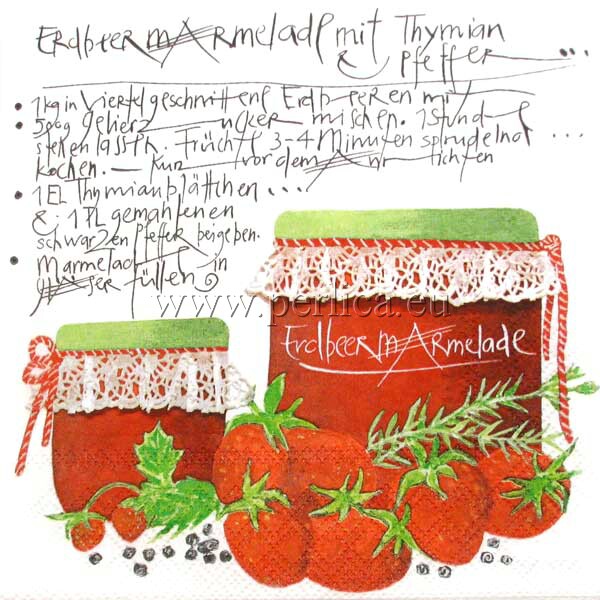 Erdbeermarmelade mit Thymian
& Pfeffer ...
• 1kg in Viertel geschnittene Erdbeeren mit
• 500g Gelierzucker mischen. 1 Stunde
stehen lassen. Früchte 3-4 Minuten sprudelnd ...
kochen. — Kurz vor dem Anrichten
• 1 EL Thymianblättchen ...
& 1 TL gemahlenen
schwarzen Pfeffer beigeben.
• Marmelade in
Gläser füllen
www.perlica.eu
Erdbeermarmelade